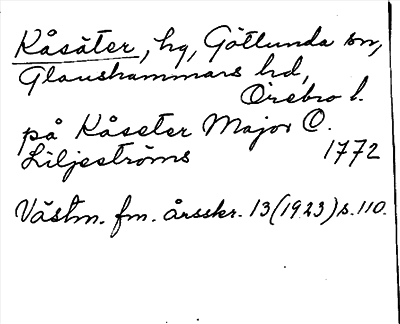 Kåsäter, hg, Götlunda sn,
Glanshammars hd,
Örebro l.
på Kåseter Major O.
Liljeströms 1772
Västm. fm. årsskr. 13(1923)s.110.